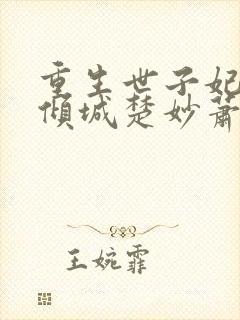 重生世子妃
倾城楚妙萧
王婉霏